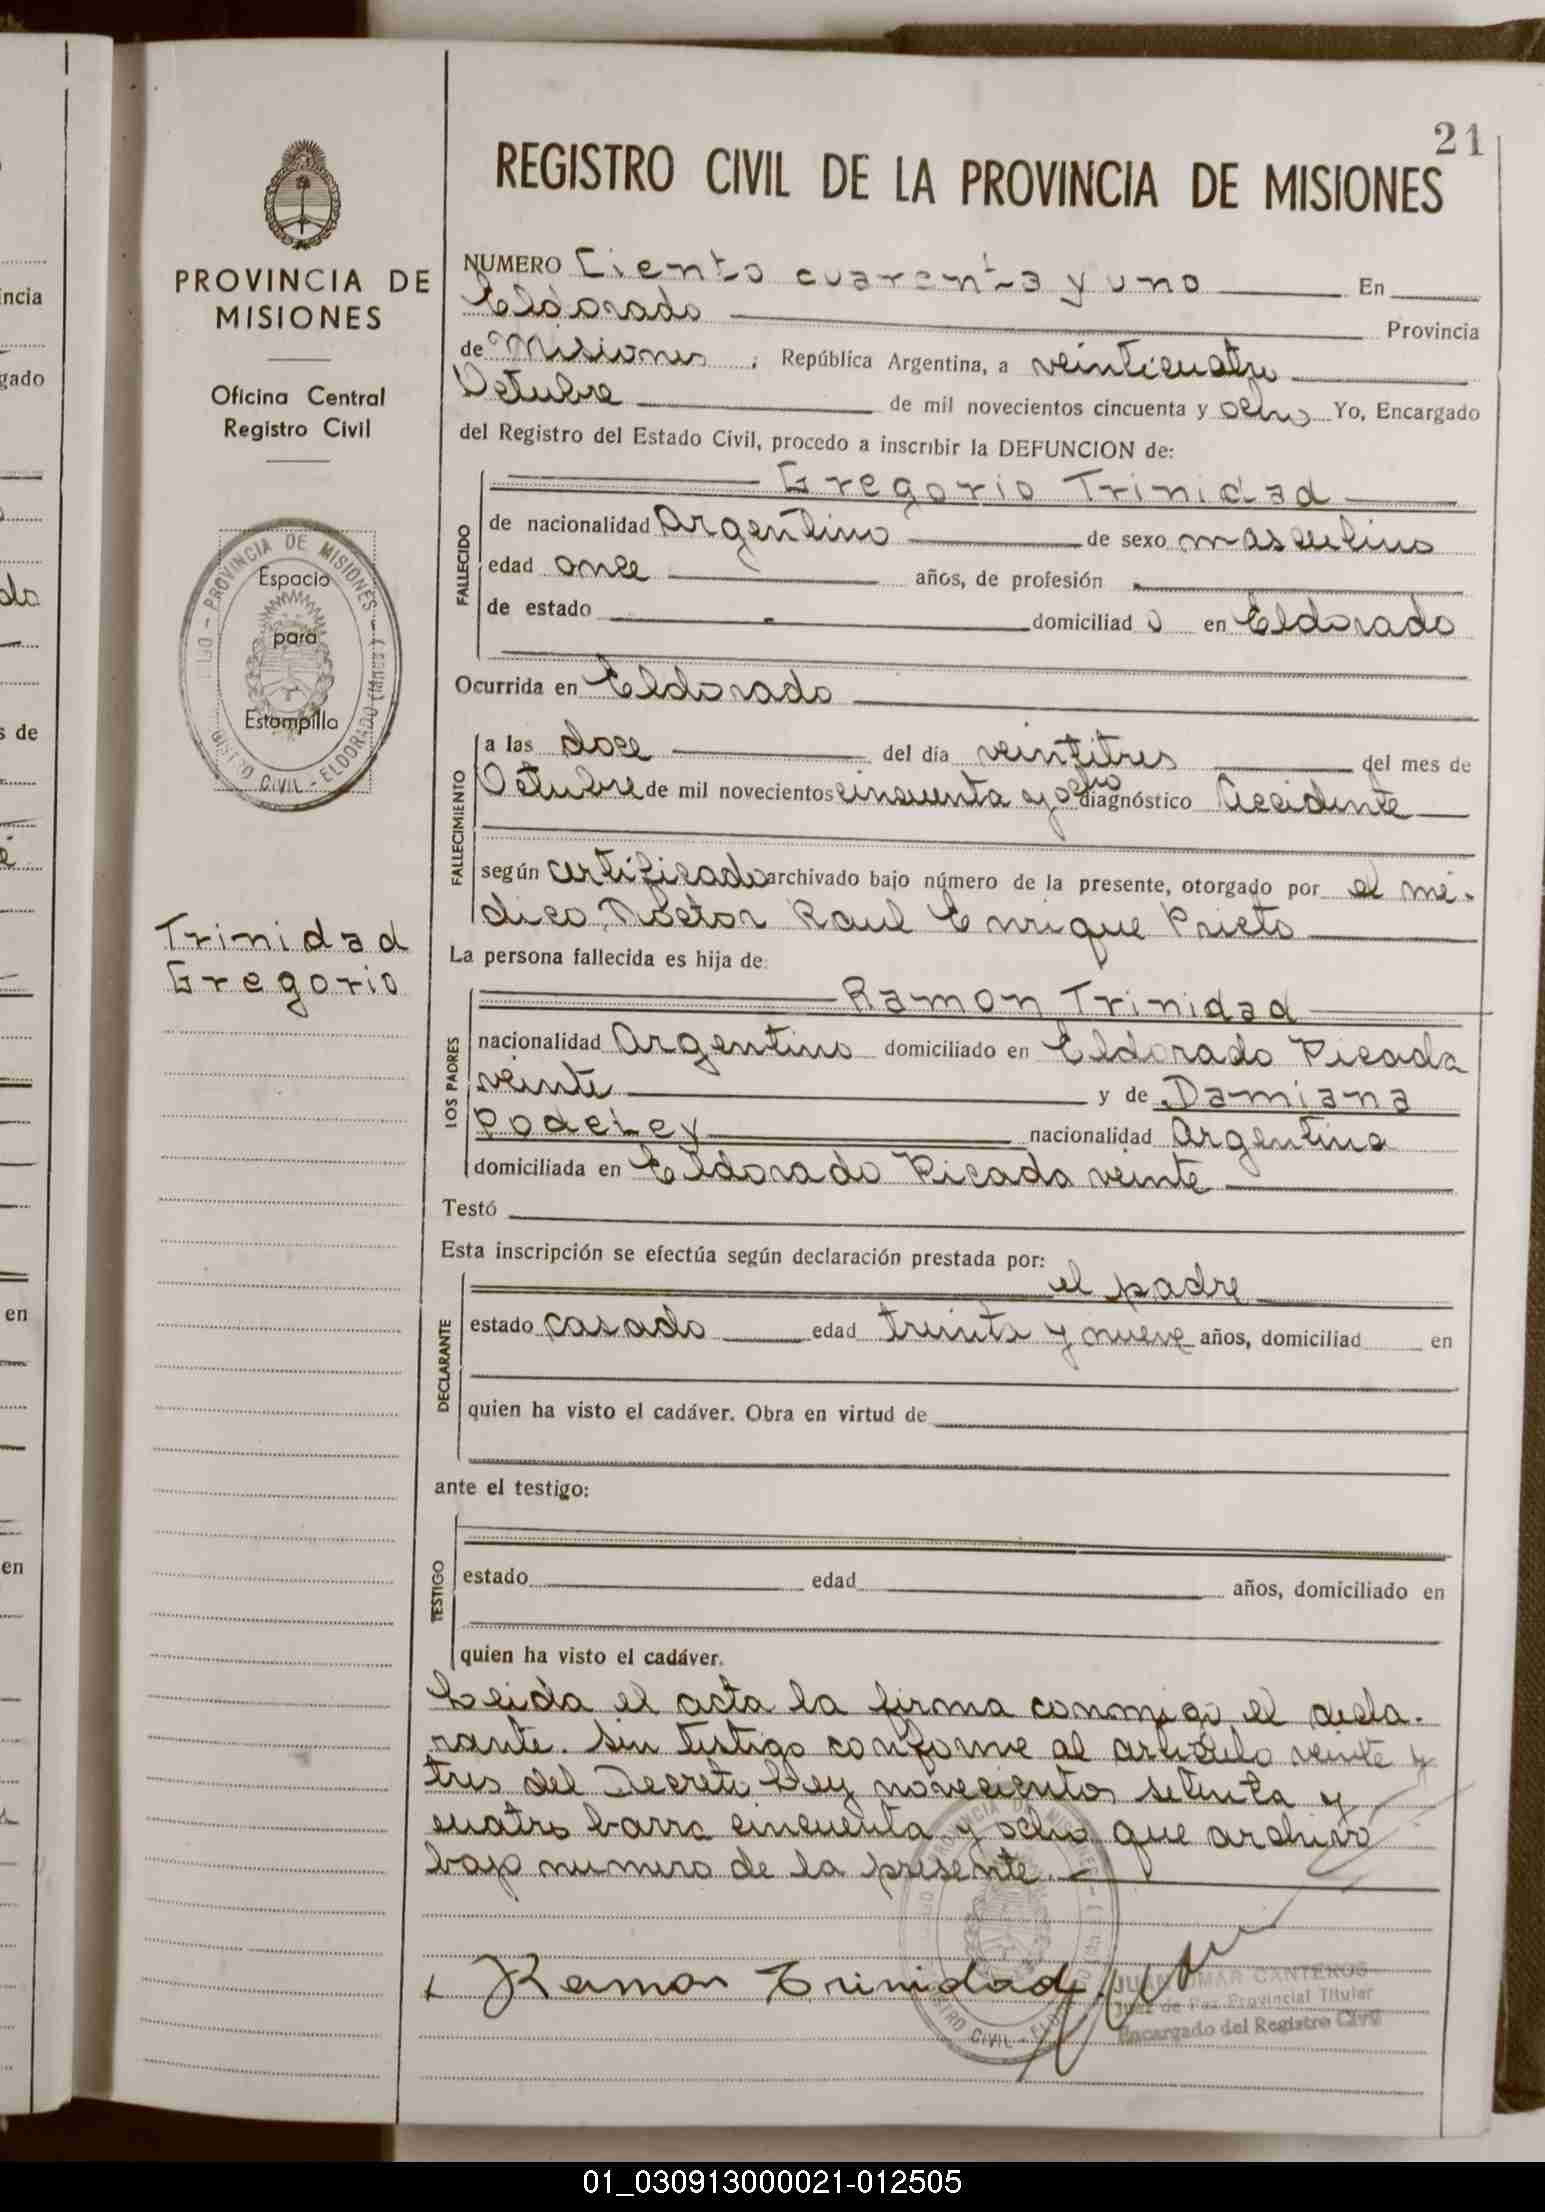 21
REGISTRO CIVIL DE LA PROVINCIA DE MISIONES
PROVINCIA DE
MISIONES
Oficina Central
Registro Civil
Espacio
para
Estampilla
PROVINCIA DE MISIONES
REGISTRO CIVIL - ELDORADO
Trinidad
Gregorio
NUMERO Ciento cuarenta y uno En
Eldorado Provincia
de Misiones ; República Argentina, a veinticuatro
Octubre de mil novecientos cincuenta y ocho Yo, Encargado
del Registro del Estado Civil, procedo a inscribir la DEFUNCION de:
FALLECIDO
Gregorio Trinidad
de nacionalidad Argentino de sexo masculino
edad once años, de profesión
de estado domiciliad o en Eldorado
Ocurrida en Eldorado
FALLECIMIENTO
a las doce del día veintitres del mes de
Octubre de mil novecientos cincuenta y ocho diagnóstico Accidente
según certificado archivado bajo número de la presente, otorgado por el mé-
dico Doctor Raul Enrique Prieto
La persona fallecida es hija de:
LOS PADRES
Ramon Trinidad
nacionalidad Argentino domiciliado en Eldorado Picada
veinte y de Damiana
Podeley nacionalidad Argentina
domiciliada en Eldorado Picada veinte
Testó
Esta inscripción se efectúa según declaración prestada por:
DECLARANTE
el padre
estado casado edad treinta y nueve años, domiciliad en
quien ha visto el cadáver. Obra en virtud de
ante el testigo:
TESTIGO
estado edad años, domiciliado en
quien ha visto el cadáver.
Leida el acta la firma conmigo el decla-
rante. Sin testigo conforme al articulo veinte y
tres del Decreto Ley novecientos setenta y
cuatro barra cincuenta y ocho que archivo
bajo numero de la presente.-
Ramon Trinidad
JUAN OMAR CANTEROS
Juez de Paz Provincial Titular
Encargado del Registro Civil
01_030913000021-012505